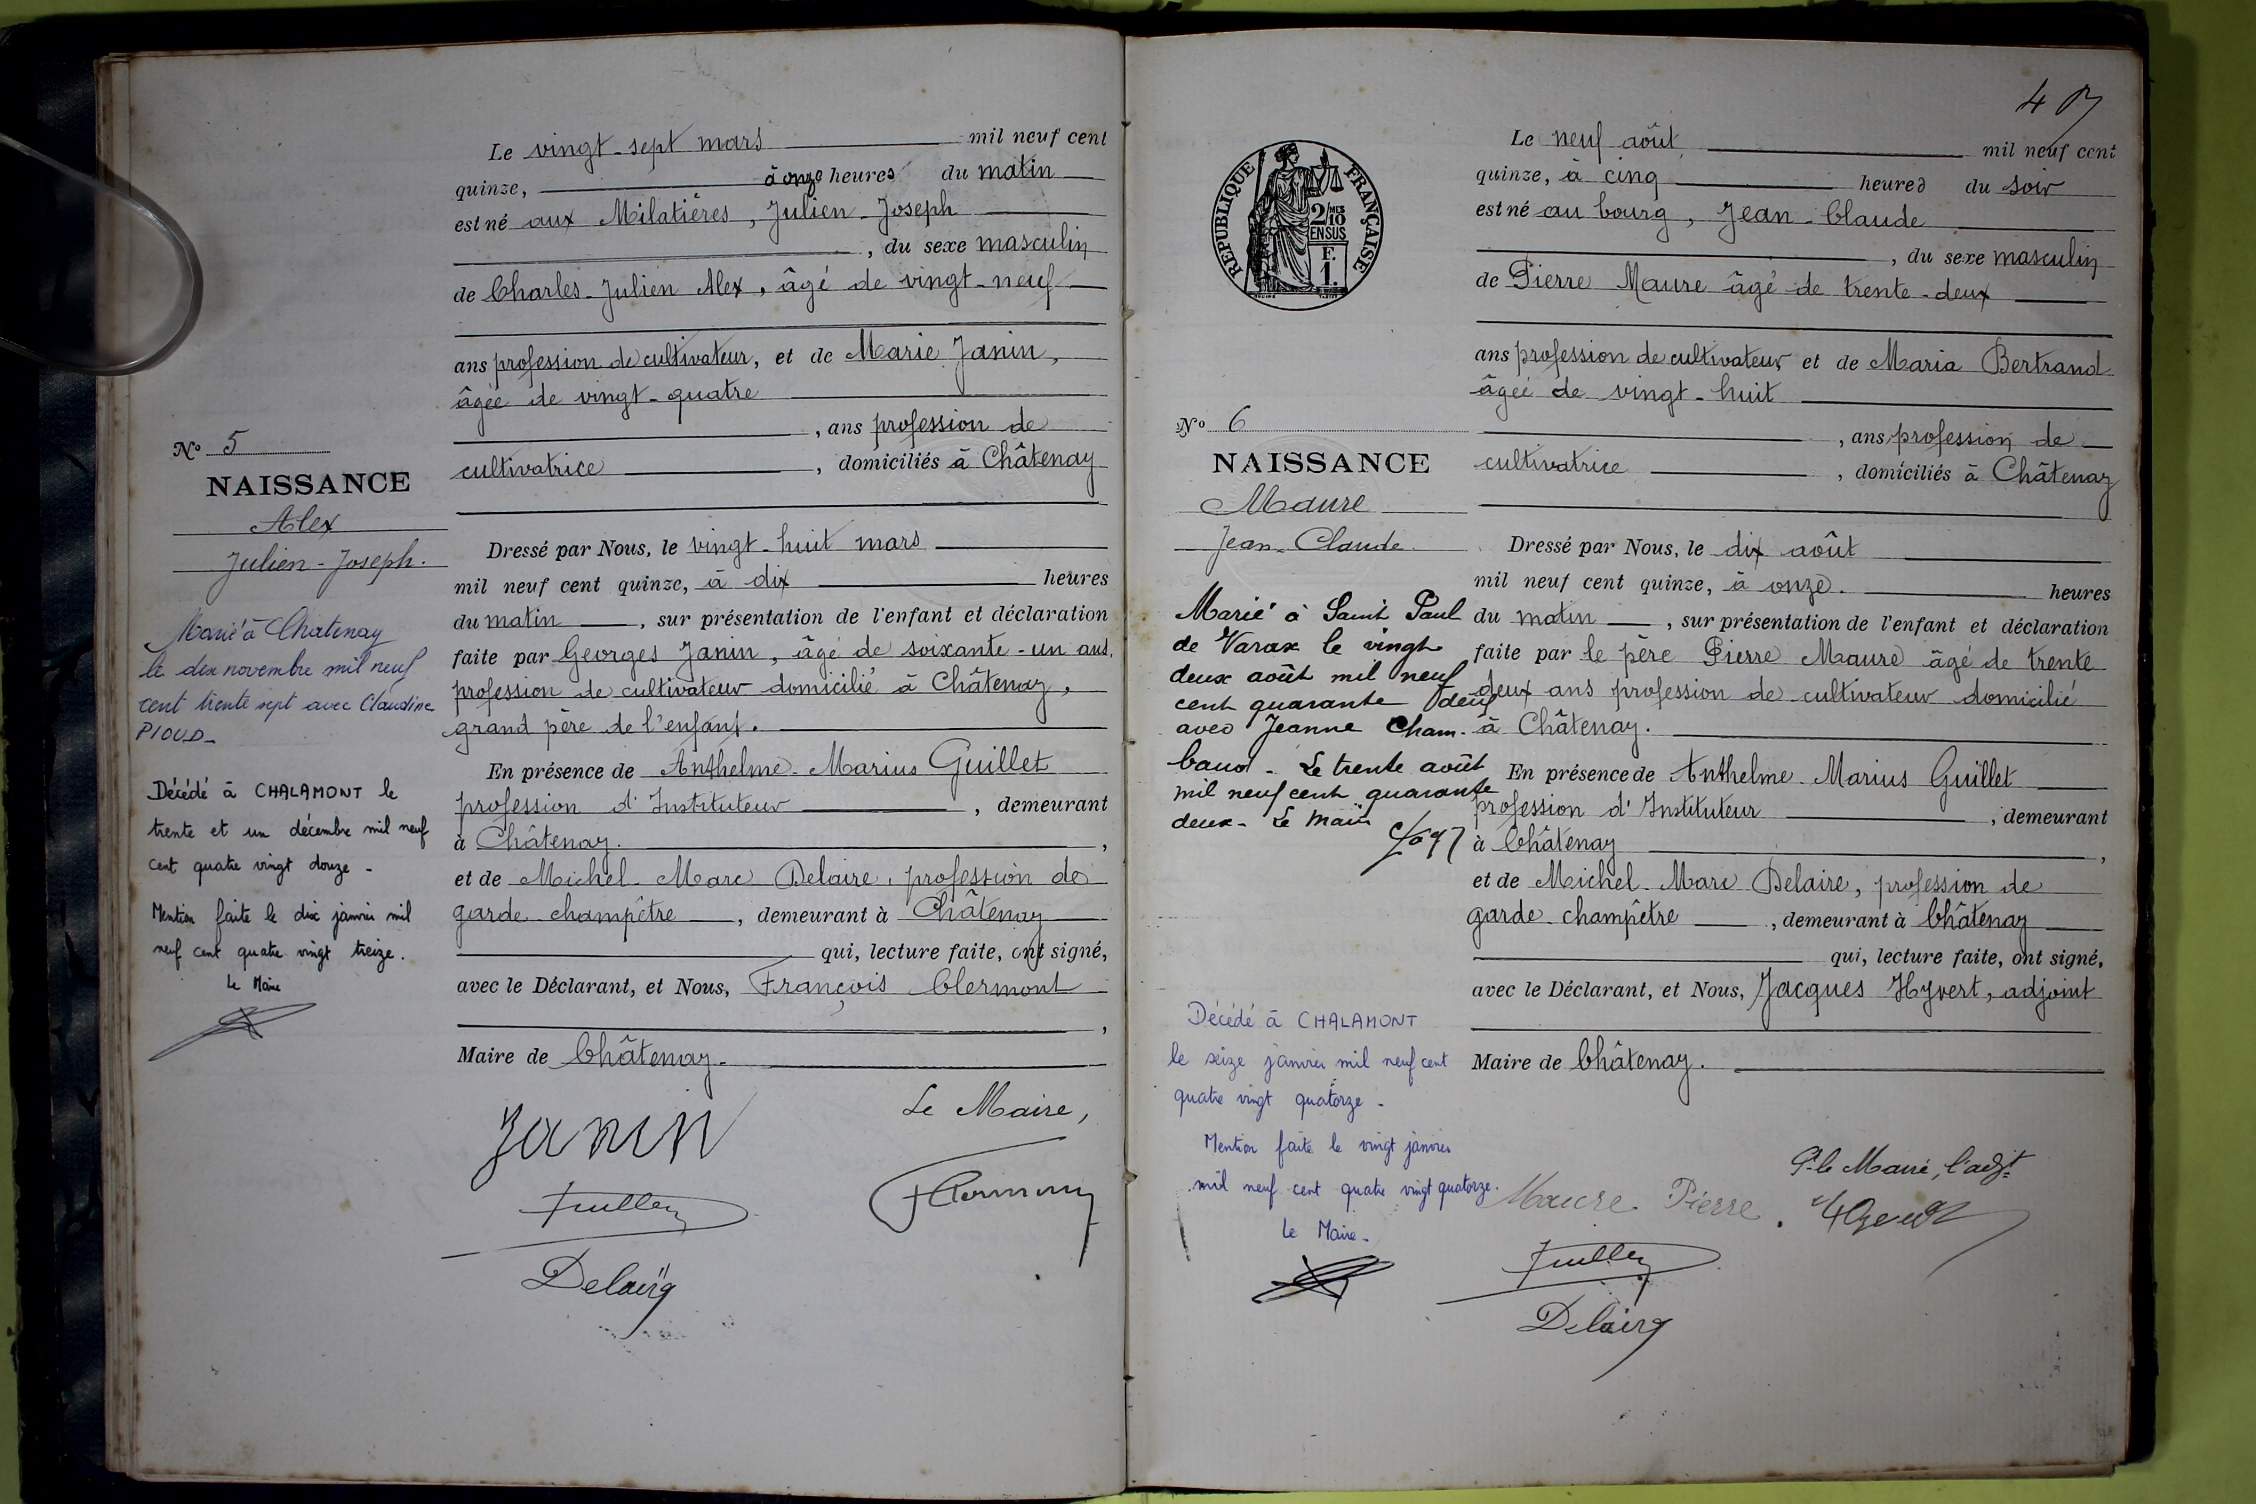 Le vingt-sept mars mil neuf cent
quinze, à onze heures du matin
est né aux Milatières, Julien-Joseph
, du sexe masculin
de Charles-Julien Alex, âgé de vingt-neuf
ans profession de cultivateur, et de Marie Janin,
âgée de vingt-quatre
, ans profession de
cultivatrice , domiciliés à Châtenay
Dressé par Nous, le vingt-huit mars
mil neuf cent quinze, à dix heures
du matin , sur présentation de l'enfant et déclaration
faite par Georges Janin, âgé de soixante-un ans,
profession de cultivateur domicilié à Châtenay,
grand père de l'enfant.
En présence de Anthelme-Marius Guillet
profession d'Instituteur , demeurant
à Châtenay. ,
et de Michel-Marc Delaire, profession de
garde-champêtre , demeurant à Châtenay
qui, lecture faite, ont signé,
avec le Déclarant, et Nous, François Clermont
,
Maire de Châtenay.
Janin
Le Maire,
FClermont
Guillet
Delaire
N° 5
NAISSANCE
Alex
Julien-Joseph.
Marié à Chatenay
le dix novembre mil neuf
cent trente sept avec Claudine
PIOUD-
Décédé à CHALAMONT le
trente et un décembre mil neuf
cent quatre vingt douze -
Mention faite le dix janvier mil
neuf cent quatre vingt treize.
Le Maire
4
Le neuf août mil neuf cent
quinze, à cinq heures du soir
est né au bourg, Jean-Claude
, du sexe masculin
de Pierre Maure âgé de trente-deux
ans profession de cultivateur, et de Maria Bertrand
âgée de vingt-huit
, ans profession de
cultivatrice , domiciliés à Châtenay
Dressé par Nous, le dix août
mil neuf cent quinze, à onze. heures
du matin , sur présentation de l'enfant et déclaration
faite par le père Pierre Maure âgé de trente
deux ans profession de cultivateur domicilié
à Châtenay.
En présence de Anthelme-Marius Guillet
profession d'Instituteur , demeurant
à Châtenay ,
et de Michel-Marc Delaire, profession de
garde-champêtre , demeurant à Châtenay
qui, lecture faite, ont signé,
avec le Déclarant, et Nous, Jacques Hyvert, adjoint
Maire de Châtenay.
Pr le Maire, l'adjt
Maure Pierre.
Hyvert
Guillet
Delaire
RÉPUBLIQUE FRANÇAISE
2/10 MES
EN SUS
F.
1.
N° 6
NAISSANCE
Maure
Jean-Claude.
Marié à Saint Paul
de Varax le vingt
deux août mil neuf
cent quarante deux
avec Jeanne Cham-
baud - Le trente août
mil neuf cent quarante
deux - Le Maire
Décédé à CHALAMONT
le seize janvier mil neuf cent
quatre vingt quatorze -
Mention faite le vingt janvier
mil neuf cent quatre vingt quatorze.
Le Maire -